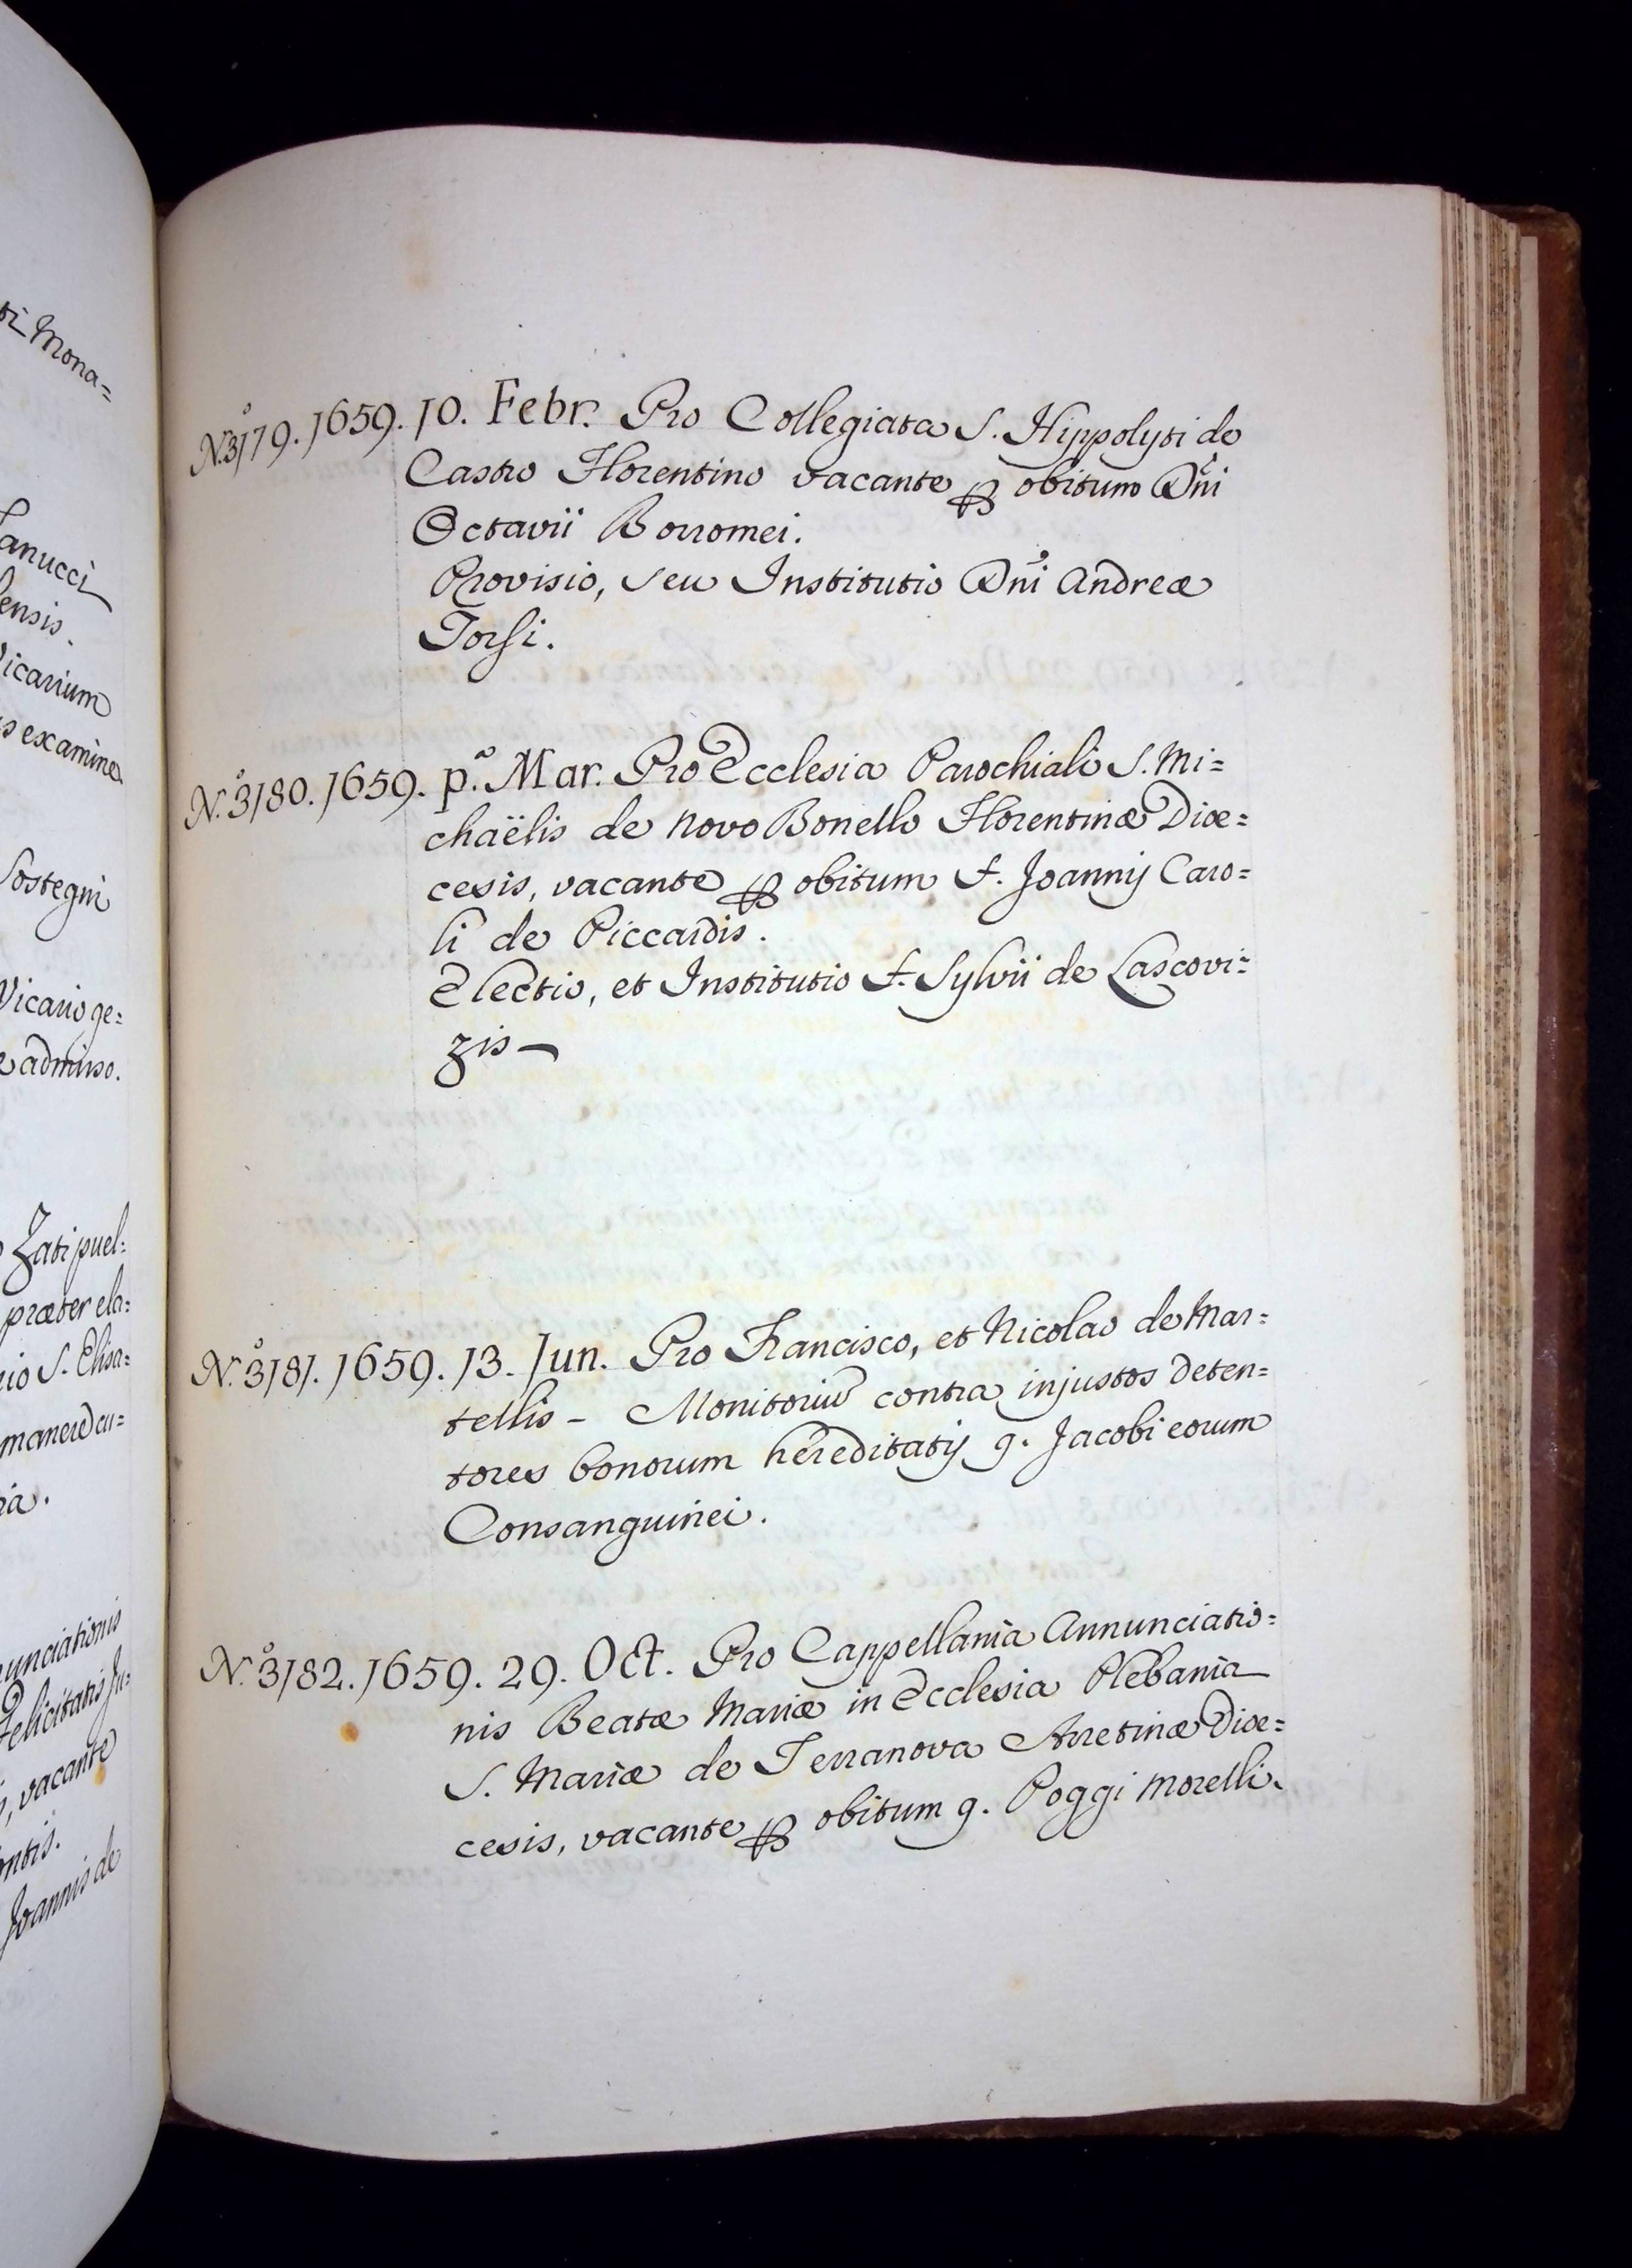 ti Mona=
anucci
ensis.
Vicarium
s examine
Sostegni
Vicario ge=
e admisso.
Zati puel=
præter ela=
io S. Elisa=
manere cu=
ia.
nunciationis
Felicitatis Ju=
, vacante
ontis.
Joannis de
N.º 3179. 1659. 10. Febr. Pro Collegiata S. Hippolyti de
Castro Florentino vacante ꝑ obitum Dñi
Octavii Borromei.
Provisio, seu Institutio Dñi Andreæ
Torsi.
N.º 3180. 1659. p.º Mar. Pro Ecclesia Parochiali S. Mi=
chaëlis de novo Bonello Florentinæ Diœ=
cesis, vacante ꝑ obitum f. Joannij Caro=
li de Piccardis.
Electio, et Institutio f. Sylvii de Lascovi=
zis –
N.º 3181. 1659. 13. Jun. Pro Francisco, et Nicolao de Mar=
tellis – Monitoriũ contra injustos deten=
tores bonorum hereditatij q. Jacobi eorum
Consanguinei.
N.º 3182. 1659. 29. Oct. Pro Cappellania Annunciatio=
nis Beatæ Mariæ in Ecclesia Plebania
S. Mariæ de Terranova Arretinæ Diœ=
cesis, vacante ꝑ obitum q. Poggi Morelli.